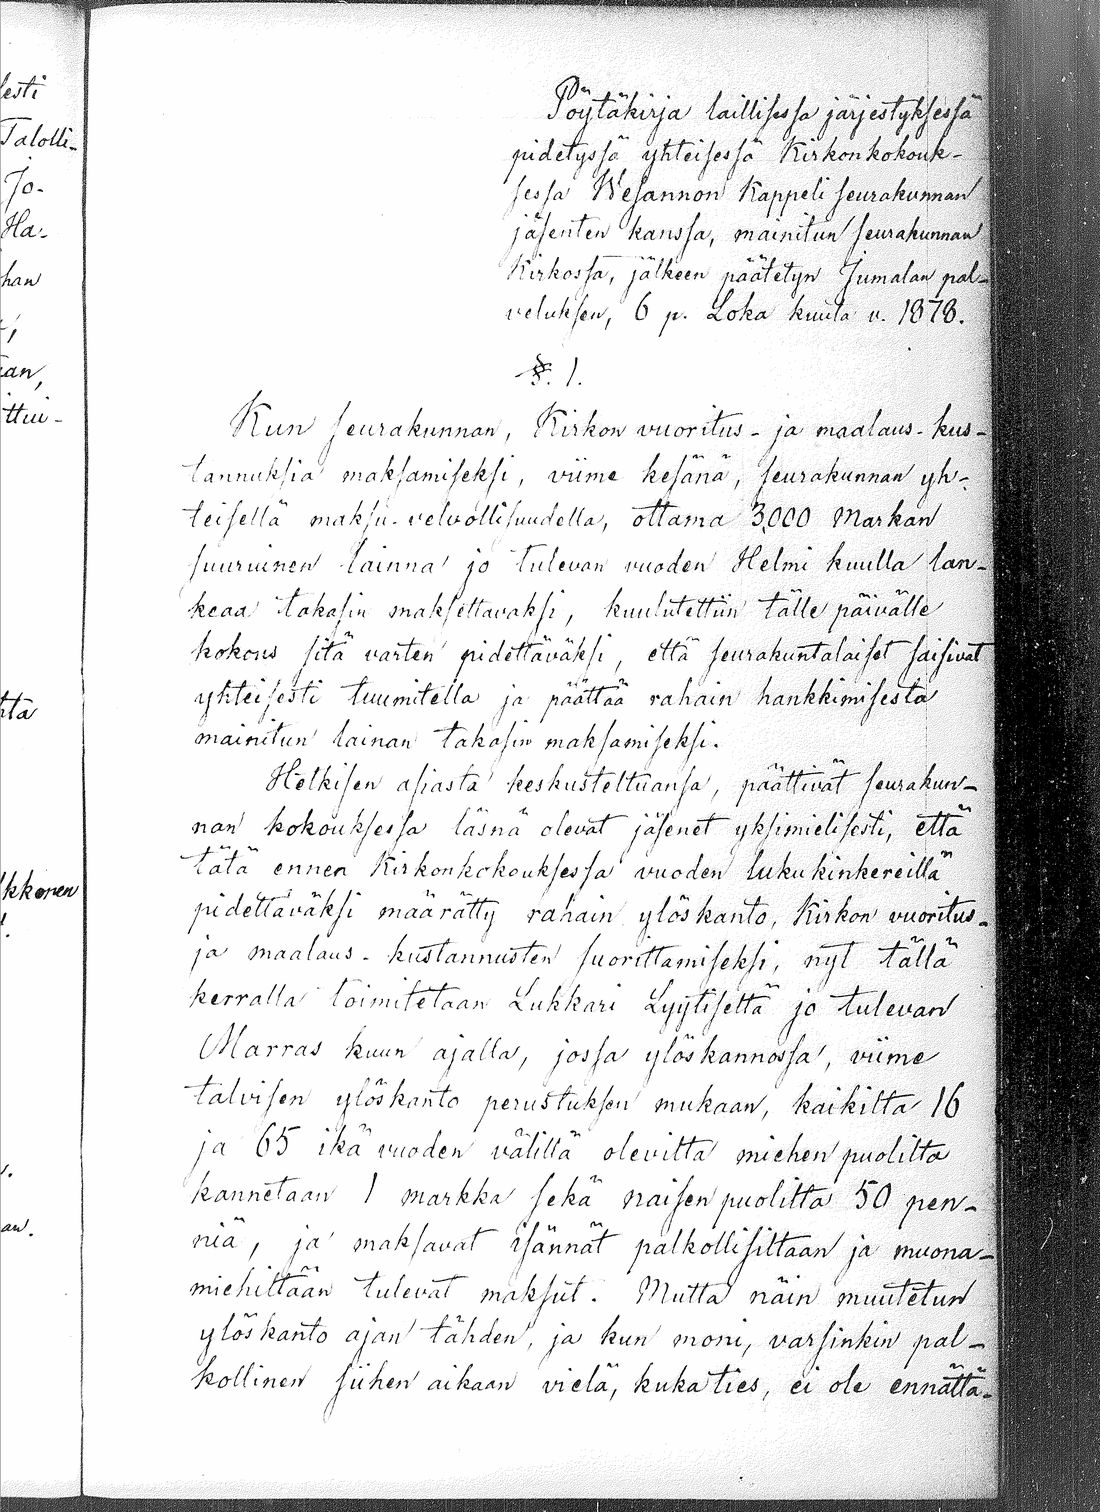 lesti
Talolli-
Jo-
Ha-
han
an,
ttui-
hta
kkonen
an.
Pöytäkirja laillisessa järjestyksessä
pidetyssä yhteisessä Kirkonkokouk-
sessa Wesannon Kappeli seurakunnan
jäsenten kanssa, mainitun seurakunnan
Kirkossa, jälkeen päätetyn Jumalan pal-
veluksen, 6 p. Loka kuuta v. 1878.
§. 1.
Kun seurakunnan, Kirkon vuoritus- ja maalaus- kus-
tannuksia maksamiseksi, viime kesänä, seurakunnan yh-
teisellä maksu-velvollisuudella, ottama 3,000 Markan
suuruinen lainna jo tulevan vuoden Helmi kuulla lan-
keaa takasin maksettavaksi, kuulutettiin tälle päivälle
kokous sitä varten pidettäväksi, että seurakuntalaiset saisivat
yhteisesti tuumitella ja päättää rahain hankkimisesta
mainitun lainan takasin maksamiseksi.
Hetkisen asiasta keskusteltuansa, päättivät seurakun-
nan kokouksessa läsnä olevat jäsenet yksimielisesti, että
tätä ennen Kirkonkokouksessa vuoden lukukinkereillä
pidettäväksi määrätty rahain ylöskanto, Kirkon vuoritus-
ja maalaus- kustannusten suorittamiseksi, nyt tällä
kerralla toimitetaan Lukkari Lyytiseltä jo tulevan
Marras kuun ajalla, jossa ylöskannossa, viime
talvisen ylöskanto perustuksen mukaan, kaikilta 16
ja 65 ikä vuoden välillä olevilta miehen puolilta
kannetaan 1 markka sekä naisen puolilta 50 pen-
niä, ja maksavat isännät palkollisiltaan ja muona-
miehiltään tulevat maksut. Mutta näin muutetun
ylöskanto ajan tähden, ja kun moni, varsinkin pal-
kollinen siihen aikaan vielä, kuka ties, ei ole ennättä-